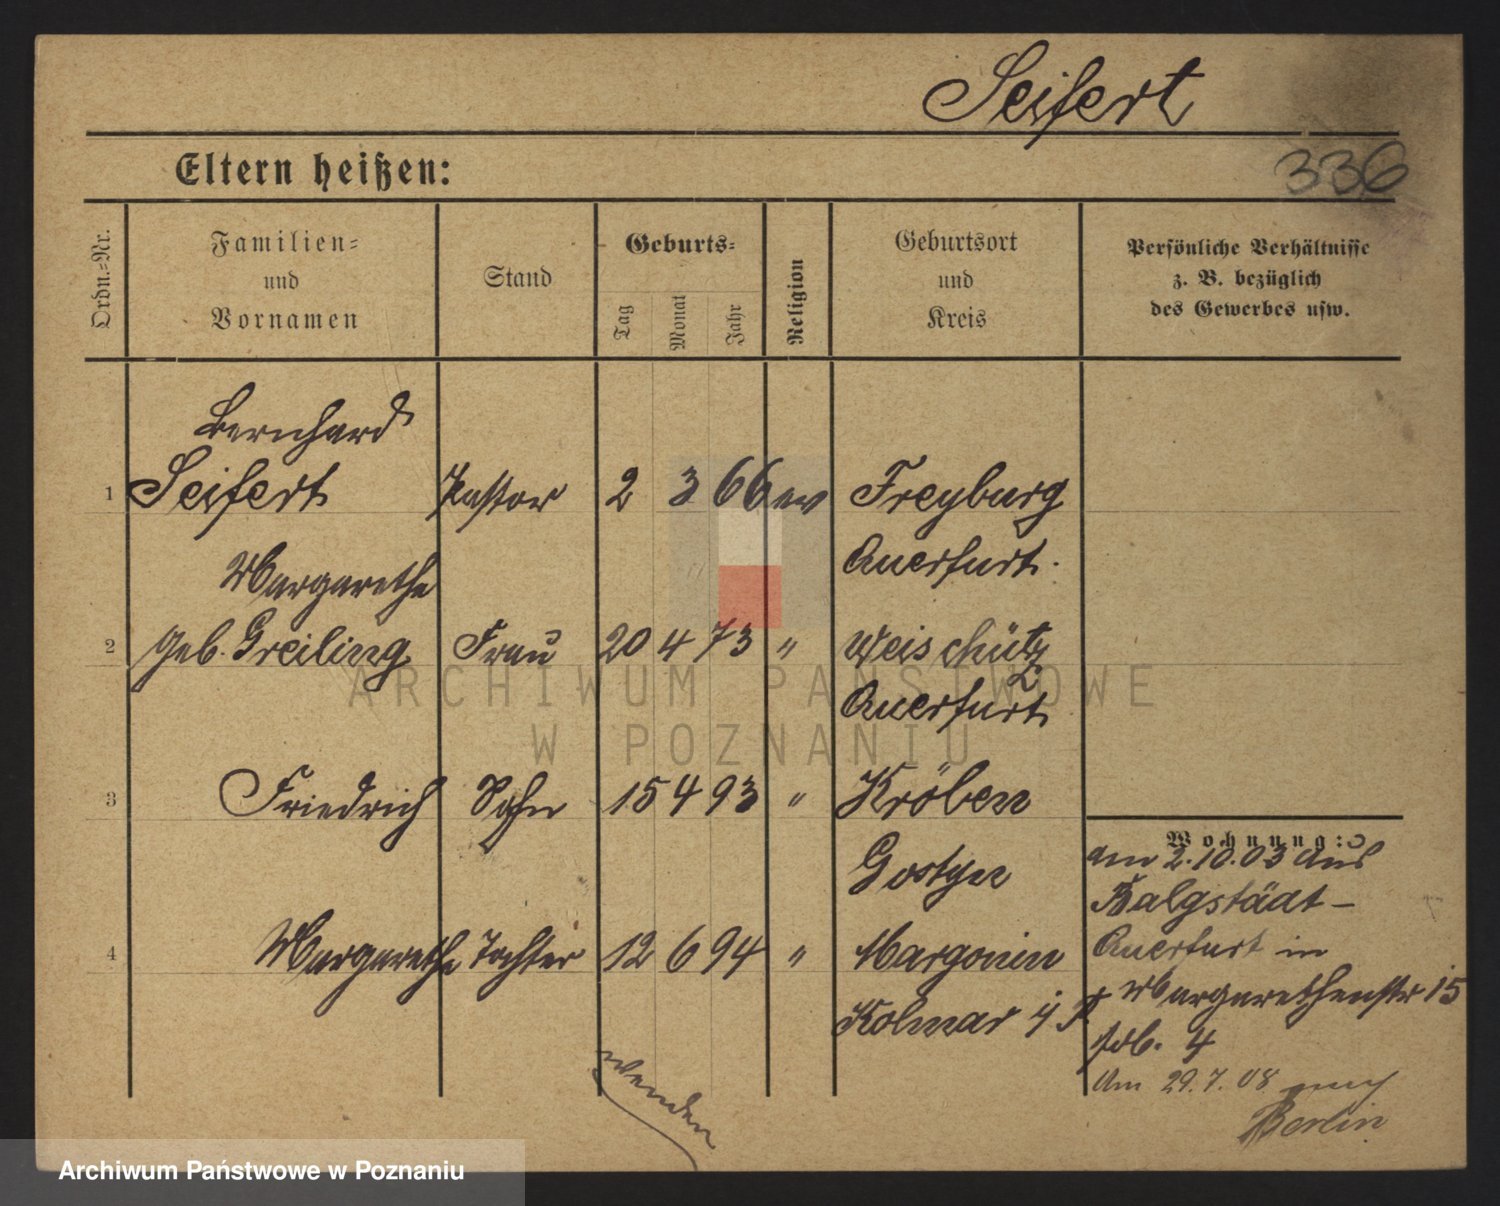 Seifert
336
Eltern heißen:
Ordn.=Nr.
Familien=
und
Vornamen
Stand
Geburts=
Tag
Monat
Jahr
Religion
Geburtsort
und
Kreis
Persönliche Verhältnisse
z. B. bezüglich
des Gewerbes usw.
Bernhard
1 Seifert Pastor 2 3 66 ev Freyburg
Margarethe Querfurt.
2 geb. Greiling Frau 20 4 73 " Weischütz
Querfurt
3 Friedrich Sohn 15 4 93 " Kröben
Gostyn
4 Margarethe Tochter 12 6 94 " Margonin
Kolmar i/P.
Wohnung:
am 2.10.03 aus
Balgstädt-
Querfurt in
Margarethenstr 15
4
Am 29.7.08 nach
Berlin
wenden
ARCHIWUM PAŃSTWOWE
W POZNANIU
Archiwum Państwowe w Poznaniu